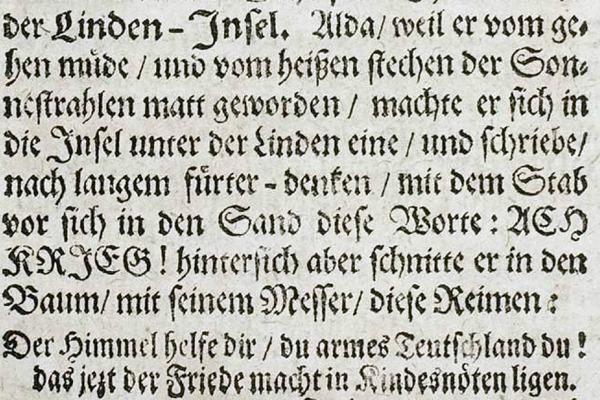 der Linden-Insel. Alda/ weil er vom ge-
hen müde / und vom heißen stechen der Son-
nestrahlen matt geworden / machte er sich in
die Insel unter der Linden eine / und schriebe/
nach langem fürter-denken / mit dem Stab
vor sich in den Sand diese Worte: ACH
KRIEG! hintersich aber schnitte er in den
Baum/ mit seinem Messer/ diese Reimen:
Der Himmel helfe dir / du armes Teutschland du!
das jezt der Friede macht in Kindesnöten ligen.